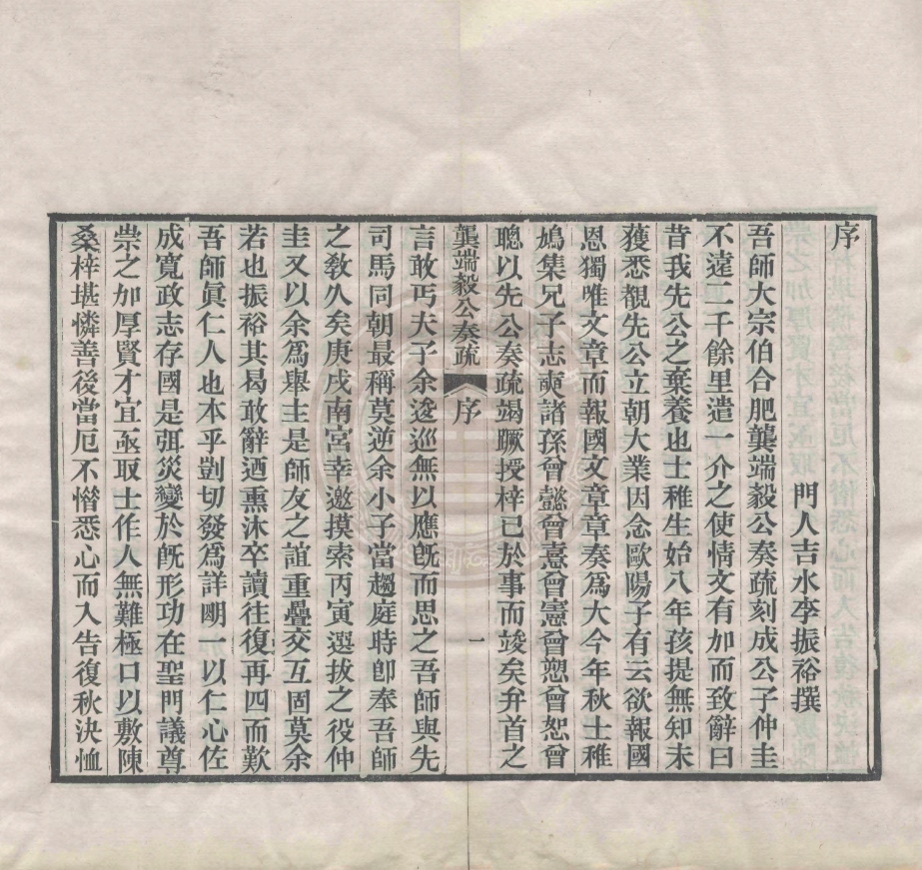 序
門人吉水李振裕撰
吾師大宗伯合肥龔端毅公奏疏刻成公子仲圭
不遠二千餘里遣一介之使情文有加而致辭曰
昔我先公之棄養也士稚生始八年孩提無知未
獲悉觀先公立朝大業因念歐陽子有云欲報國
恩獨唯文章而報國文章章奏爲大今年秋士稚
鳩集兄子志奭諸孫曾懿曾憙曾憲曾愬曾恕曾
聰以先公奏疏竭蹶授梓已於事而竣矣弁首之
龔端毅公奏疏 序 一
言敢丐夫子余逡巡無以應旣而思之吾師與先
司馬同朝最稱莫逆余小子當趨庭時卽奉吾師
之敎久矣庚戌南宮幸邀摸索丙寅選拔之役仲
圭又以余爲舉主是師友之誼重疊交互固莫余
若也振裕其曷敢辭迺熏沐卒讀往復再四而歎
吾師眞仁人也本乎剴切發爲詳明一以仁心佐
成寬政志存國是弭災變於旣形功在聖門議尊
崇之加厚賢才宜亟取士作人無難極口以敷陳
桑梓堪憐善後當厄不憯悉心而入告復秋決恤